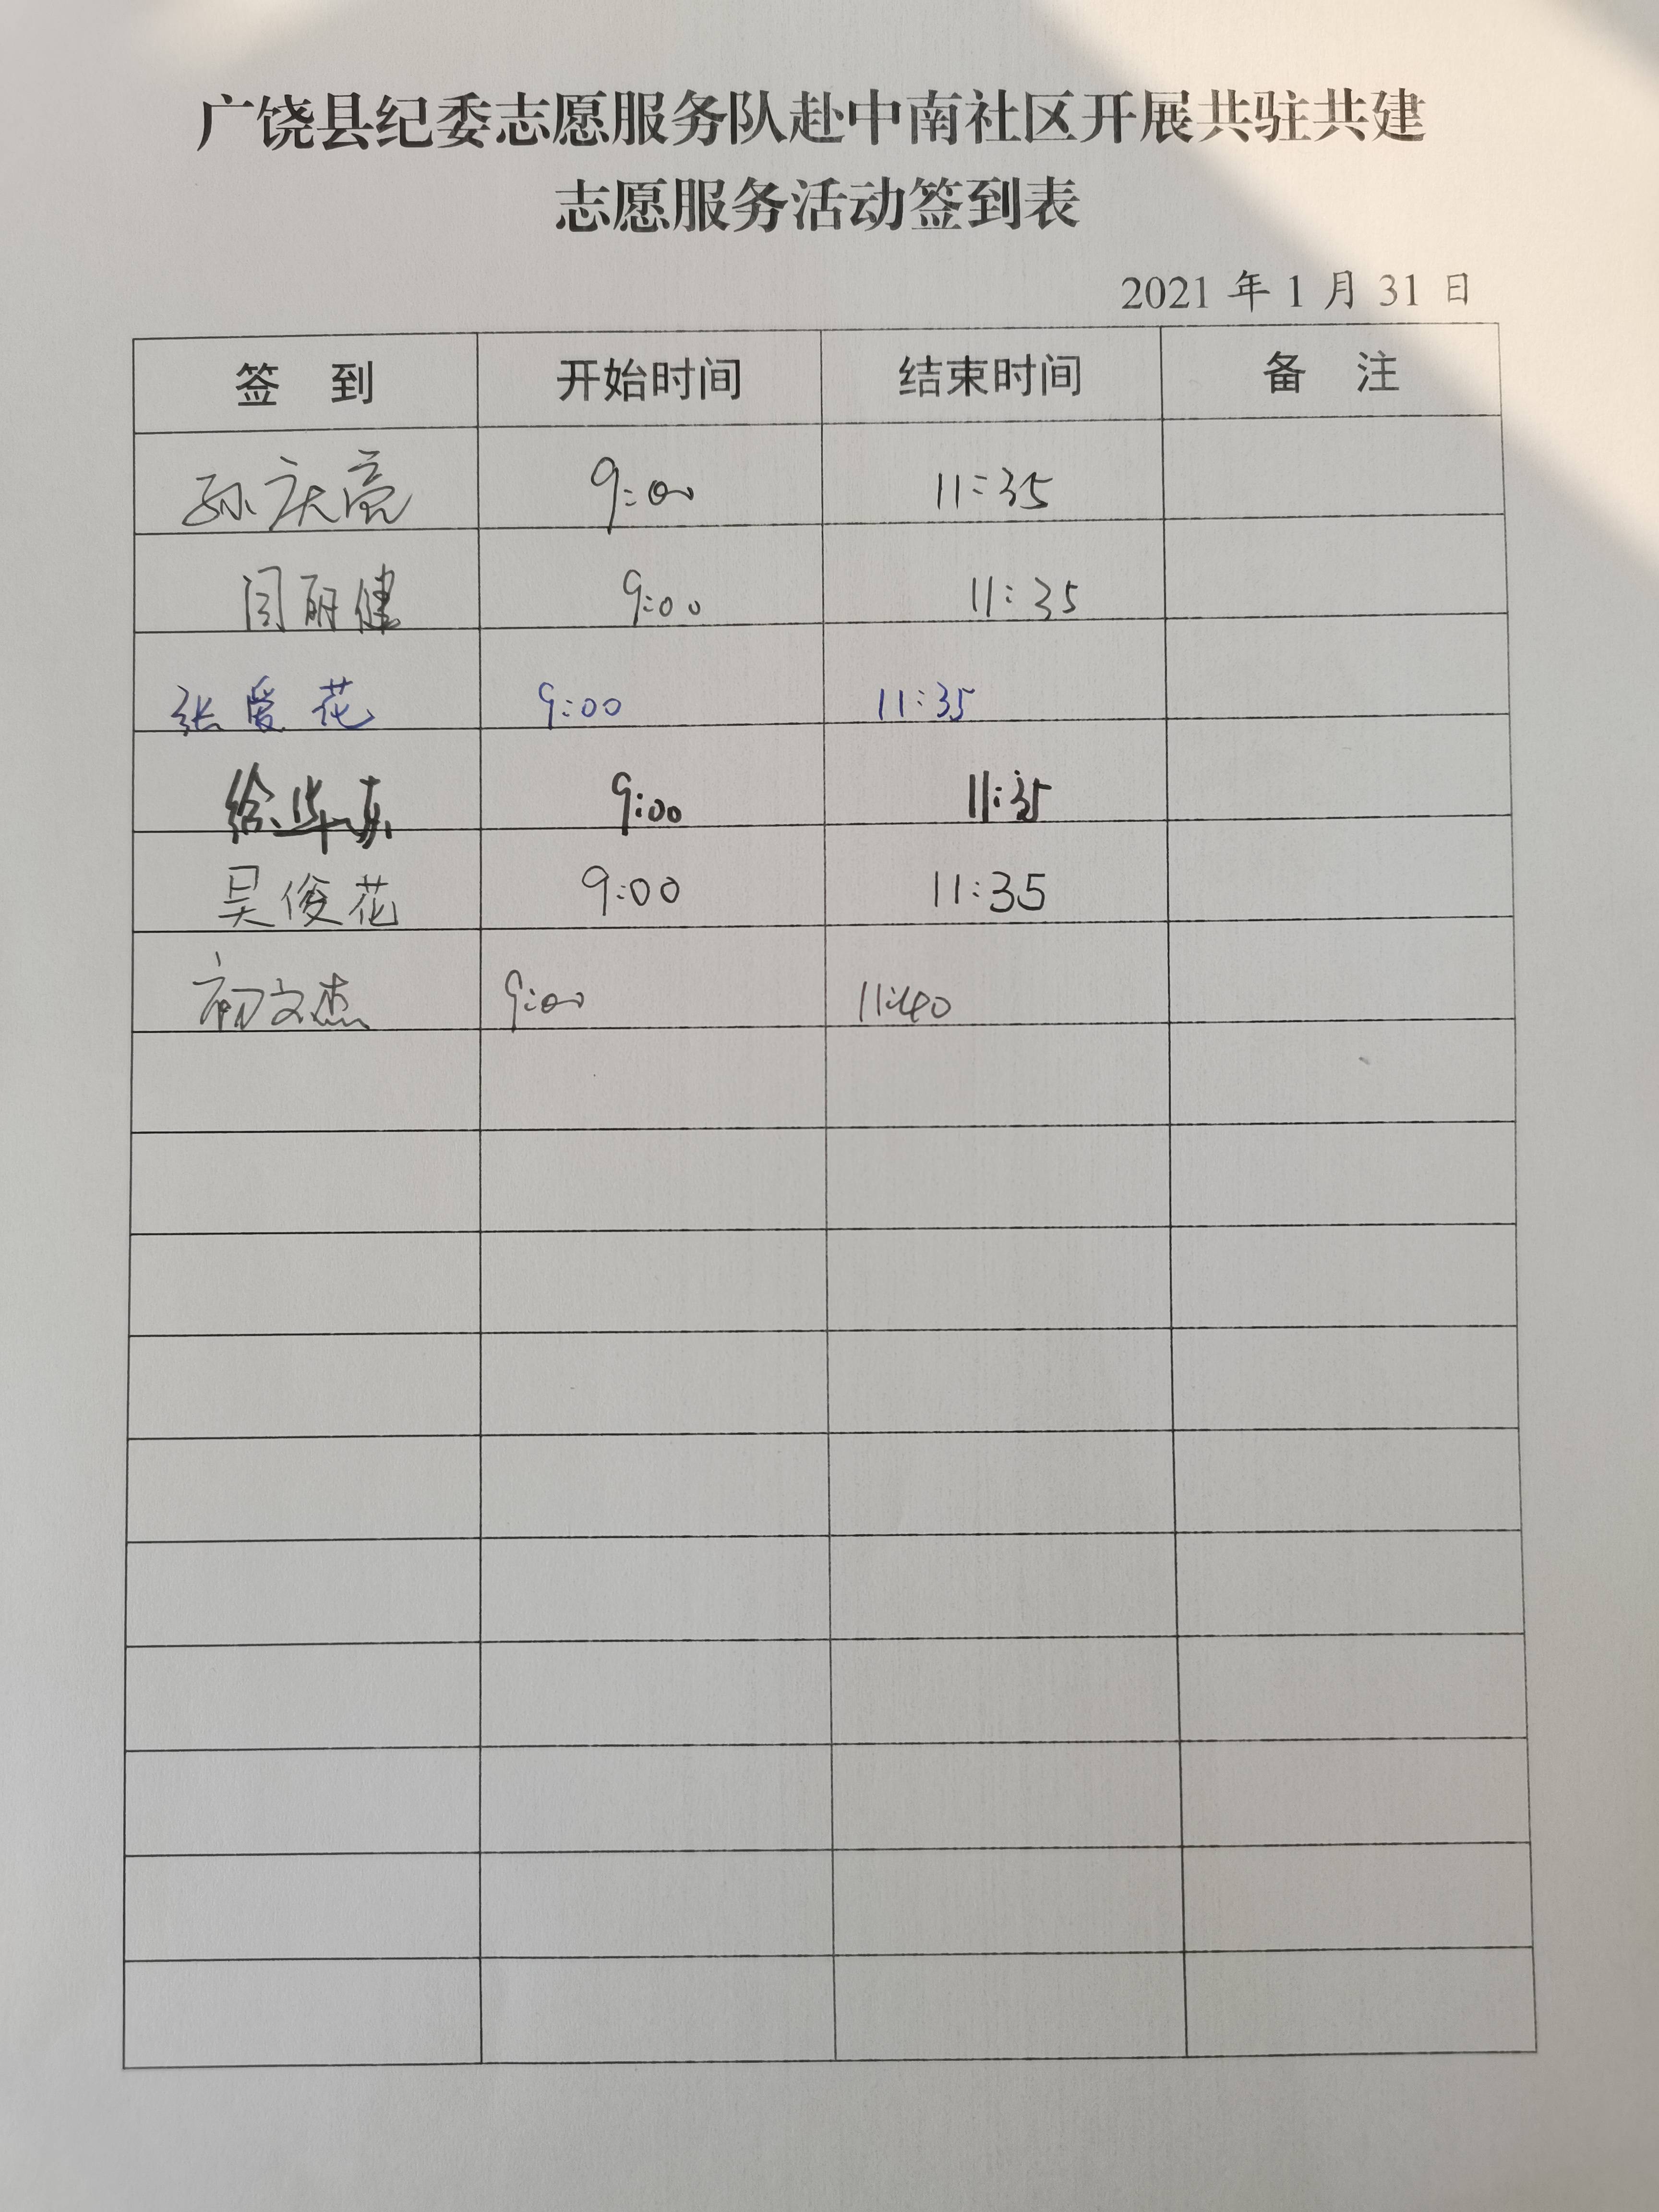 广饶县纪委志愿服务队赴中南社区开展共驻共建
志愿服务活动签到表
2021 年 1 月 31 日
签 到 开始时间 结束时间 备 注
孙庆亮 9:00 11:35
闫丽健 9:00 11:35
张爱花 9:00 11:35
徐华东 9:00 11:35
吴俊花 9:00 11:35
文杰 9:00 11:40